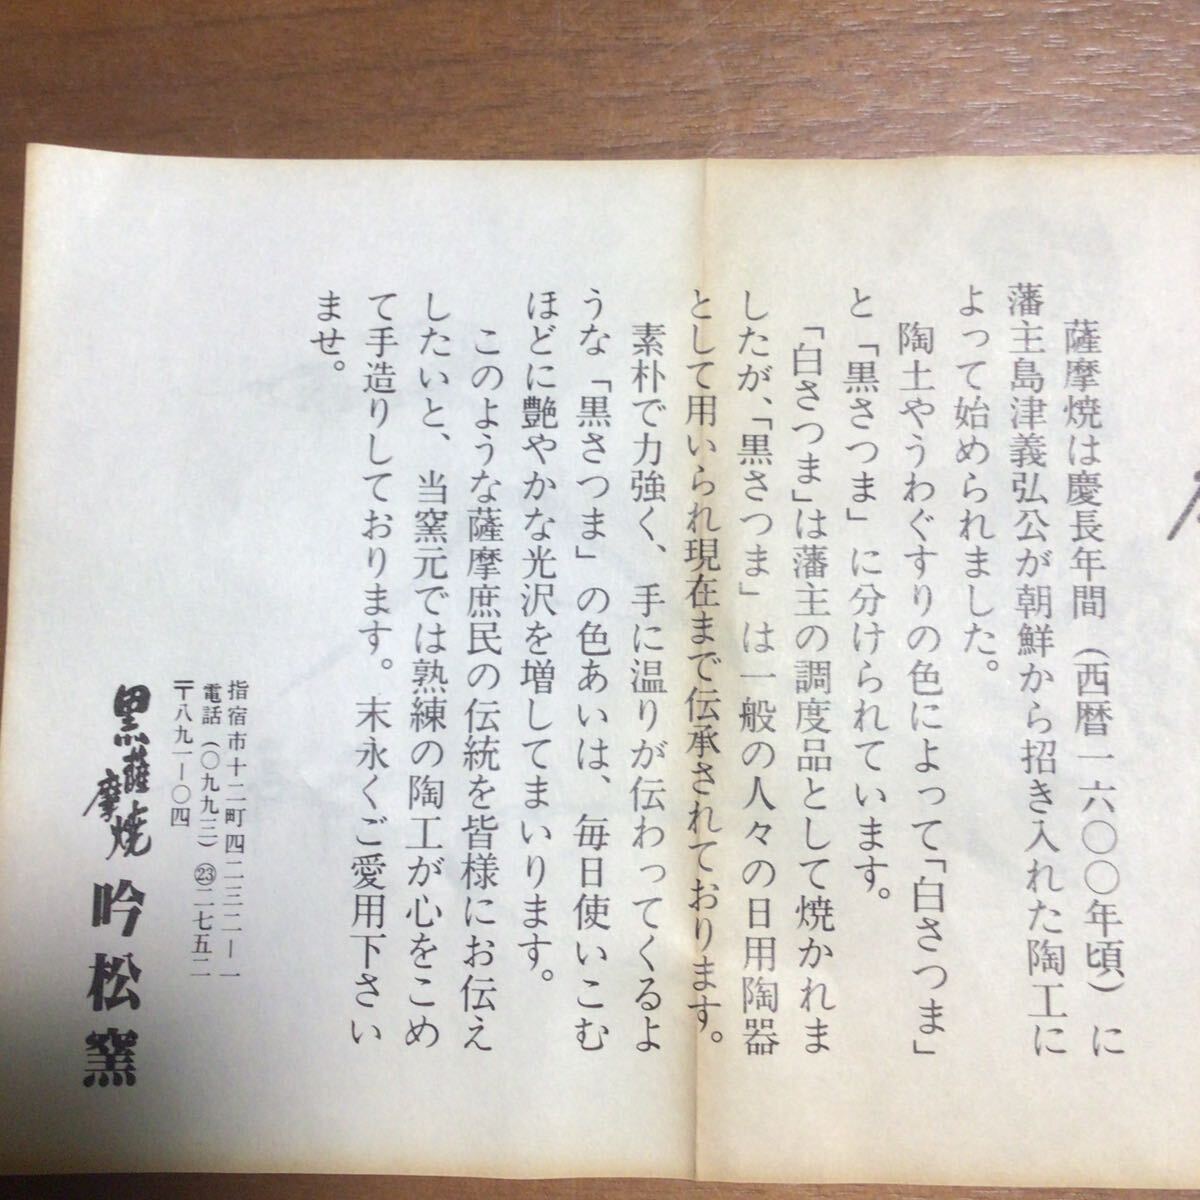 薩摩焼は慶長年間（西暦一六〇〇年頃）に
藩主島津義弘公が朝鮮から招き入れた陶工に
よって始められました。
陶土やうわぐすりの色によって「白さつま」
と「黒さつま」に分けられています。
「白さつま」は藩主の調度品として焼かれま
したが、「黒さつま」は一般の人々の日用陶器
として用いられ現在まで伝承されております。
素朴で力強く、手に温りが伝わってくるよ
うな「黒さつま」の色あいは、毎日使いこむ
ほどに艶やかな光沢を増してまいります。
このような薩摩庶民の伝統を皆様にお伝え
したいと、当窯元では熟練の陶工が心をこめ
て手造りしております。末永くご愛用下さい
ませ。
指宿市十二町四二三二ー一
電話（〇九九三）㉓二七五二
〒八九一ー〇四
黒薩摩焼 吟松窯